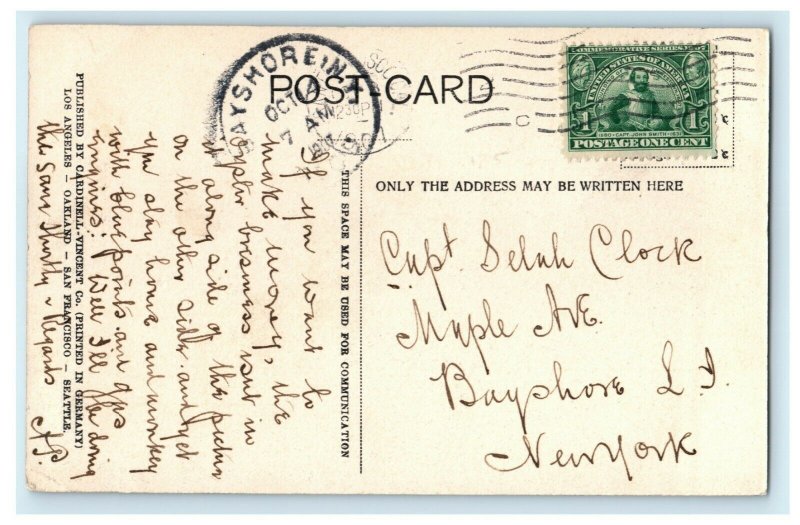 POST-CARD
BAYSHORE, N.Y.
OCT
7 AM
230P
COMMEMORATIVE SERIES 1907
UNITED STATES OF AMERICA
1
1
1580-CAPT. JOHN SMITH-1631
POSTAGE ONE CENT
THIS SPACE MAY BE USED FOR COMMUNICATION
ONLY THE ADDRESS MAY BE WRITTEN HERE
If you want to
make money, the
oyster business isnt in
it along side of this picture
on the other side. and yet
you stay home and monkey
with bluepoints and gas
engines. Well I'll be doing
the same shortly Regards
PUBLISHED BY CARDINELL-VINCENT CO. (PRINTED IN GERMANY)
LOS ANGELES - OAKLAND - SAN FRANCISCO - SEATTLE.
Capt. Selah Clock
Maple Ave.
Bayshore L.I.
New York